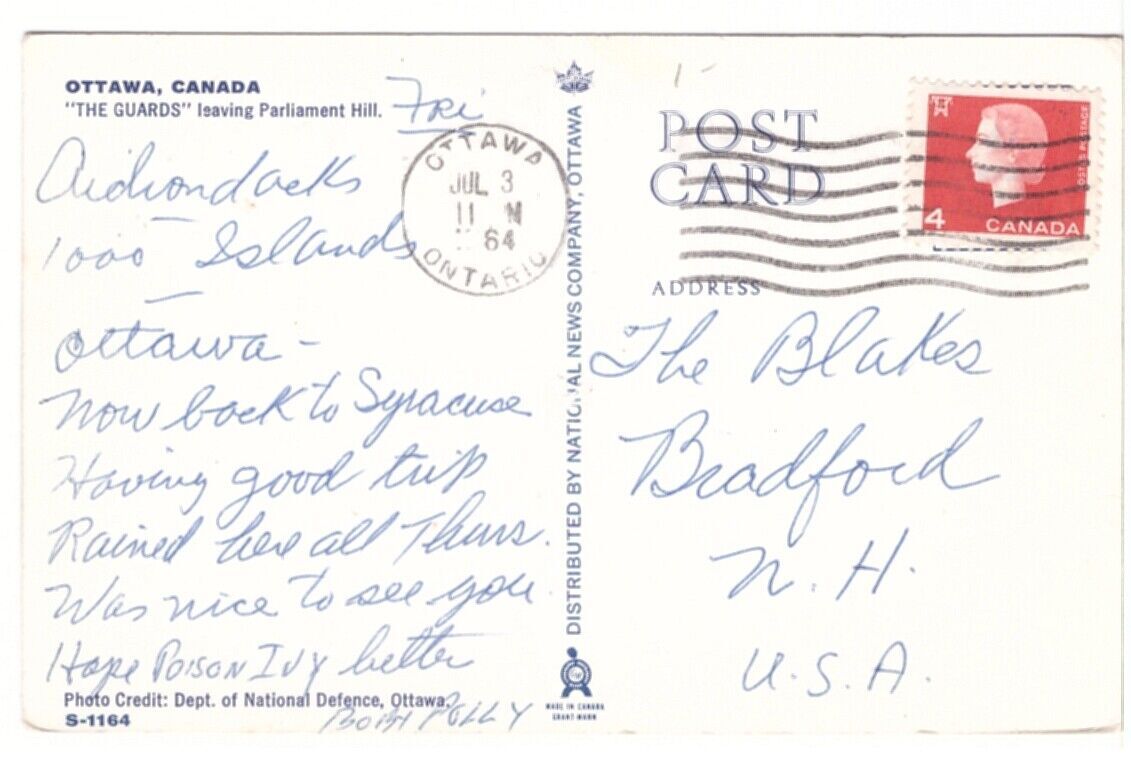 OTTAWA, CANADA
"THE GUARDS" leaving Parliament Hill.
Fri
Aidrondacks
1000 Islands
Ottawa -
Now back to Syracuse
Having good trip
Rained here all Thurs.
Was nice to see you.
Hope Poison Ivy better
Photo Credit: Dept. of National Defence, Ottawa.
S-1164
POLLY
OTTAWA
JUL 3
11 M
64
ONTARIO
DISTRIBUTED BY NATIONAL NEWS COMPANY, OTTAWA
MADE IN CANADA
POST
CARD
ADDRESS
4
CANADA
POSTES POSTAGE
The Blakes
Bradford
N. H.
U. S. A.